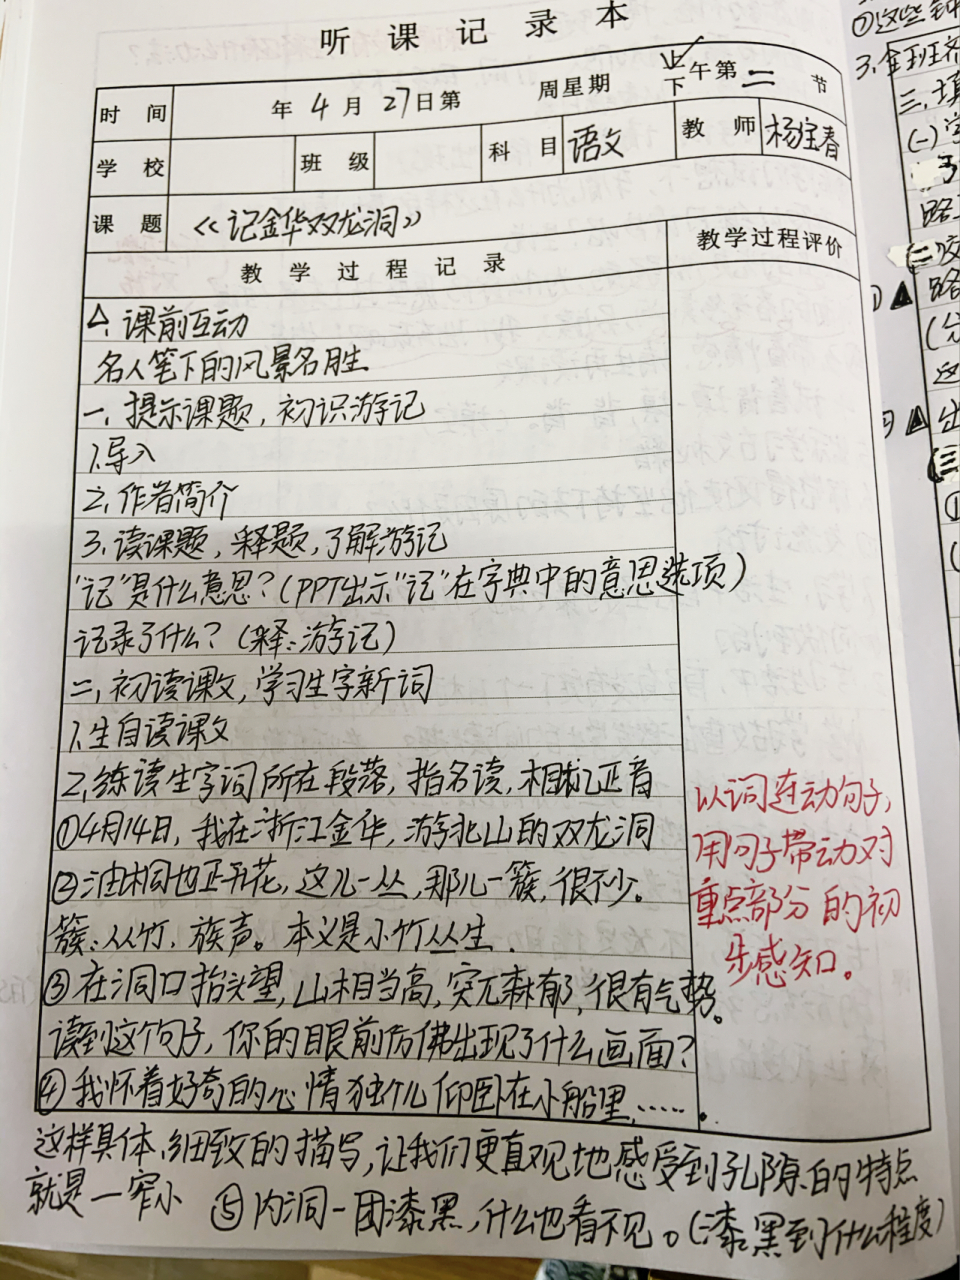 听课记录本
时间 年4月27日第 周星期 上下午第二节
学校 班级 科目 语文 教师 杨宝春
课题 《记金华双龙洞》
教学过程记录 教学过程评价
△、课前互动
名人笔下的风景名胜
一、提示课题，初识游记
1.导入
2.作者简介
3.读课题，释题，了解游记
"记"是什么意思？(PPT出示"记"在字典中的意思选项)
记录了什么？(释：游记)
二、初读课文，学习生字新词
1.生自读课文
2.练读生字词所在段落，指名读，相机正音
①4月14日，我在浙江金华，游北山的双龙洞
②油桐也正开花，这儿一丛，那儿一簇，很不少。
簇：从竹，族声。本义是小竹丛生.
③在洞口抬头望，山相当高，突兀森郁，很有气势。
读到这个句子，你的眼前仿佛出现了什么画面？
④我怀着好奇的心情独个儿仰卧在小船里……。
这样具体、细致的描写，让我们更直观地感受到孔隙的特点
就是一窄小 ⑤内洞一团漆黑，什么也看不见。(漆黑到什么程度)
以词连动句子，
用句子带动对
重点部分的初
步感知。
①这些
3.
三、填
(一)学
路
路
这
出
①